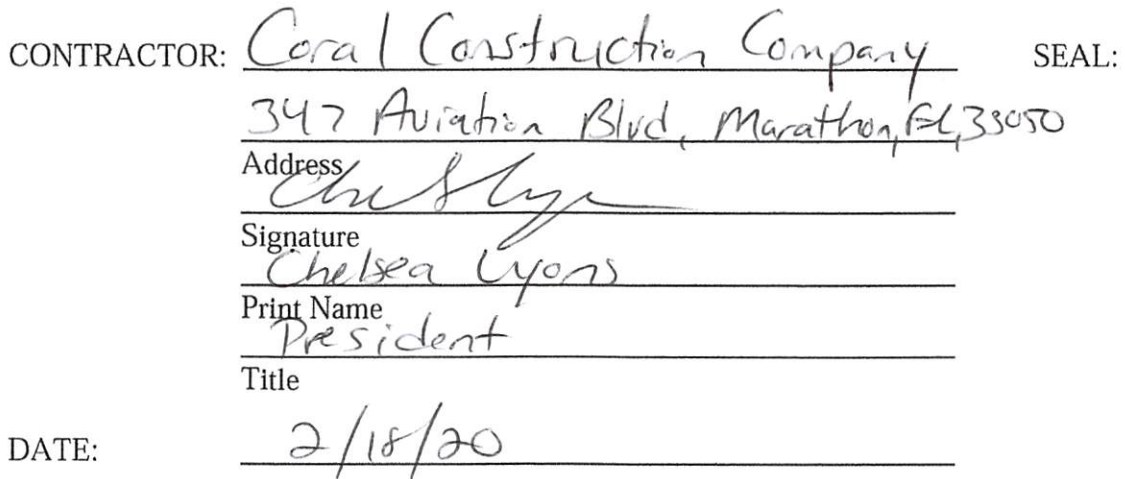 CONTRACTOR: Coral Construction Company SEAL:
347 Aviation Blvd, Marathon, FL, 33050
Address
Signature
Chelsea Lyons
Print Name
President
Title
DATE: 2/18/20